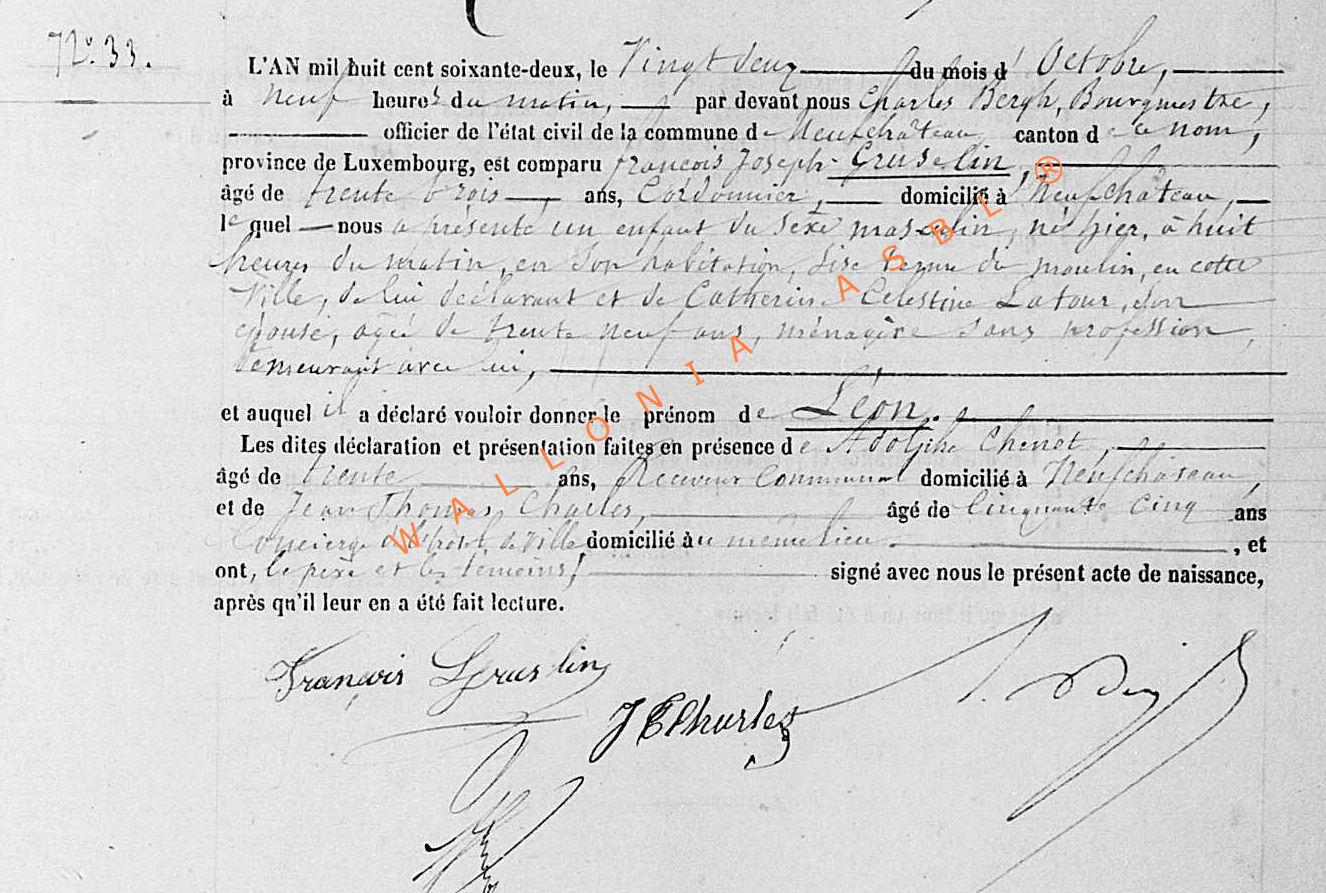 N°. 33.
L'AN mil huit cent soixante-deux, le Vingt deux du mois d'Octobre,
à neuf heures du matin, par devant nous Charles Bergh, Bourgmestre,
officier de l'état civil de la commune de Neufchâteau, canton de ce nom,
province de Luxembourg, est comparu François Joseph Gruselin,
âgé de trente trois ans, Cordonnier, domicilié à Neufchâteau,
le quel nous a présenté un enfant du sexe masculin, né hier, à huit
heures du matin, en son habitation, sise du moulin, en cette
Ville, de lui déclarant et de Catherine Celestine Latour, son
épouse, agée de trente neuf ans, ménagère sans profession,
demeurant avec lui,
et auquel il a déclaré vouloir donner le prénom de Léon.
Les dites déclaration et présentation faites en présence de Adolphe Chenot,
âgé de trente ans, Receveur Communal domicilié à Neufchâteau,
et de Jean Thomas Charles, âgé de Cinquante Cinq ans
Concierge à l'hotel de Ville domicilié au même lieu, et
ont, le père et les témoins, signé avec nous le présent acte de naissance,
après qu'il leur en a été fait lecture.
François Gruslin
J T Charles
WALLONIA ASBL ®